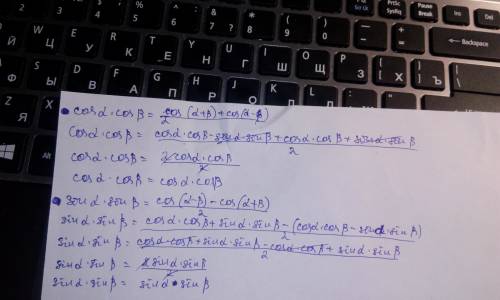 $ % ^ & * ( ) _ + Pause Break PrtSc SysRq Ins Del
4 5 6 7 8 9 0 - = ← Backspace
Й Ц У К Е Н Г Ш Щ З Х Ъ
Ф Ы В А П Р О Л Д Ж
Я
• cosα·cosβ = cos(α+β)+cos(α-β) / 2
cosα·cosβ = cosα·cosβ-sinα·sinβ+cosα·cosβ+sinα·sinβ / 2
cosα·cosβ = 2cosα·cosβ / 2
cosα·cosβ = cosα·cosβ
• sinα·sinβ = cos(α-β)-cos(α+β) / 2
sinα·sinβ = cosα·cosβ+sinα·sinβ-(cosα·cosβ-sinα·sinβ) / 2
sinα·sinβ = cosα·cosβ+sinα·sinβ-cosα·cosβ+sinα·sinβ / 2
sinα·sinβ = 2sinα·sinβ / 2
sinα·sinβ = sinα·sinβ